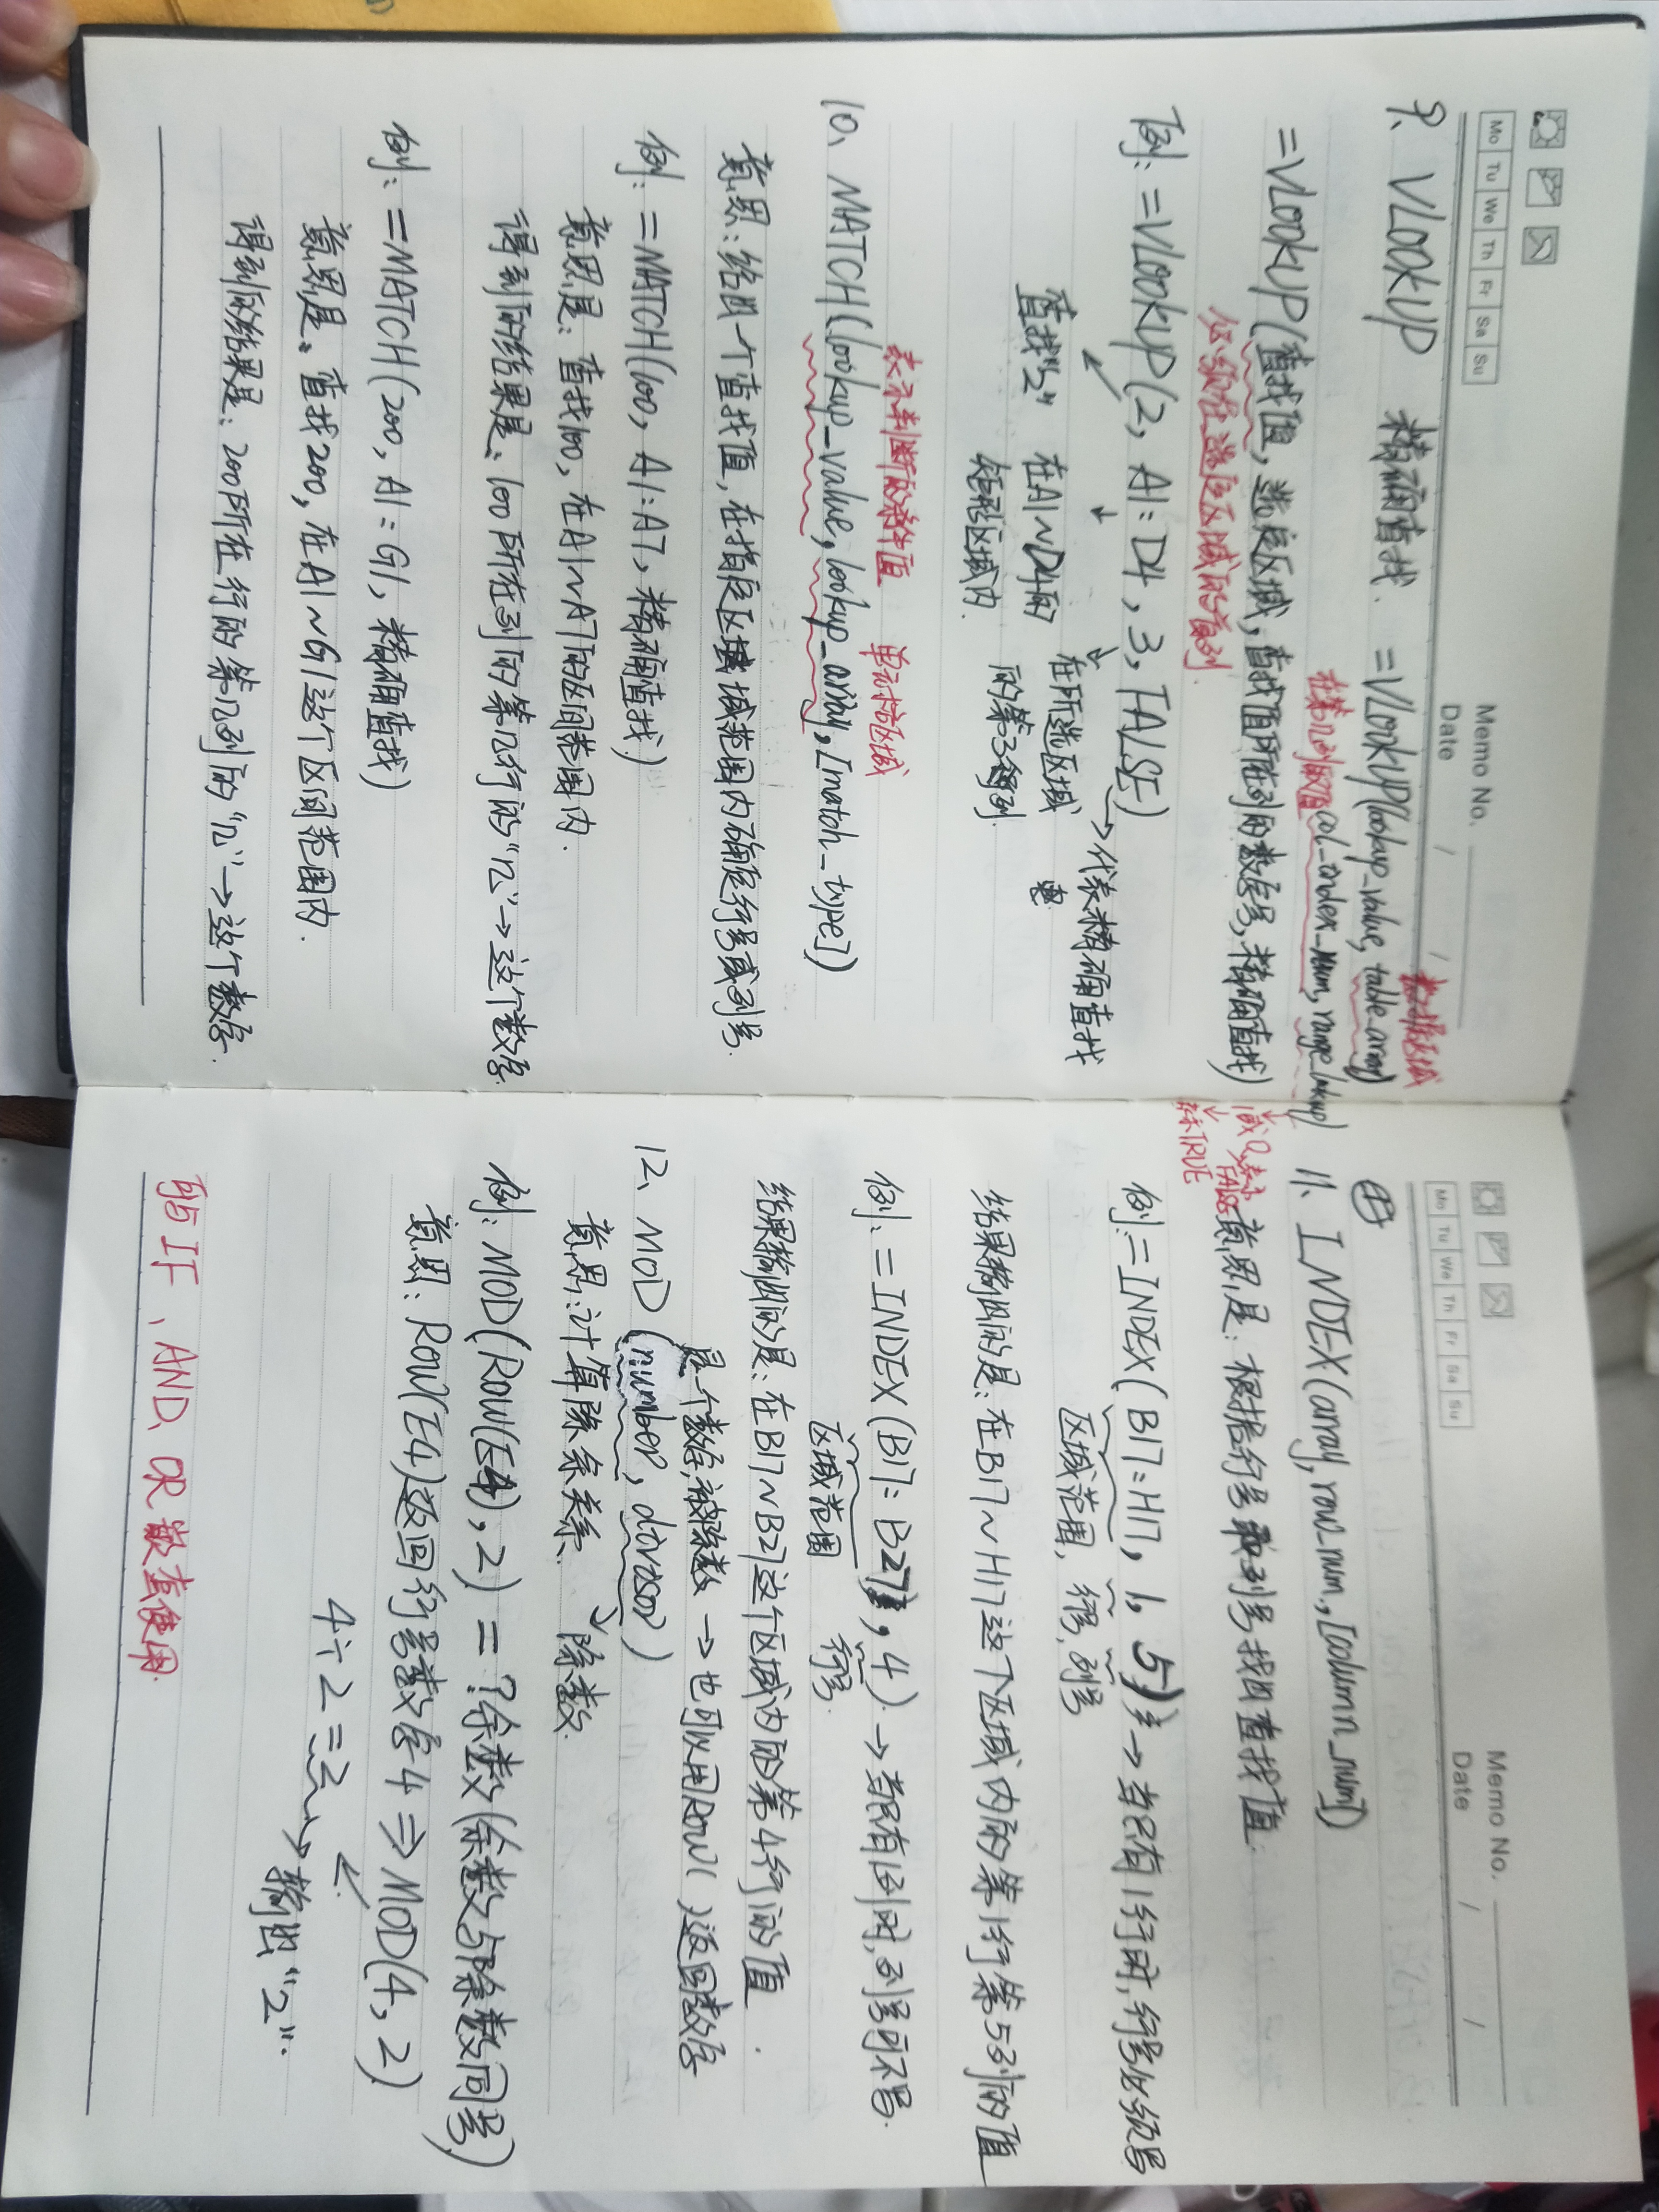 Mo Tu We Th Fr Sa Su
Memo No.
Date / /
9、VLOOKUP 精确查找. =VLOOKUP(lookup_value, table_array)
数据区域
在第几列取值 col_index_num, range_lookup)
=VLOOKUP(查找值, 选定区域, 查找值所在列的数字号, 精确查找)
必须在选定区域的首列
或0表示FALSE
表示TRUE
例: =VLOOKUP(2, A1:D4, 3, FALSE)
→代表精确查找
查找"2" 在A1~D4的矩形区域内
在所选区域的第3列
表示判断的条件值 单元格区域
10、MATCH(lookup_value, lookup_array, [match_type])
意思: 给出一个查找值, 在指定区域范围内确定行号或列号.
例: =MATCH(100, A1:A7, 精确查找)
意思是: 查找100, 在A1~A7的区间范围内.
得到的结果是: 100所在列的第几行的"几"→这个数字.
例: =MATCH(200, A1:G1, 精确查找)
意思是: 查找200, 在A1~G1这个区间范围内.
得到的结果是: 200所在行的第几列的"几"→这个数字.
Mo Tu We Th Fr Sa Su
Memo No.
Date / /
11、INDEX(array, row_num, [column_num])
意思是: 根据行号和列号找出查找值.
例: =INDEX(B17:H17, 1, 5)→当只有1行时, 行号必须写
区域范围, 行号, 列号
结果输出的是: 在B17~H17这个区域内的第1行第5列的值
例: =INDEX(B17:B27, 4)→当只有1列时, 列号可不写.
区域范围 行号
结果输出的是: 在B17~B27这个区域内的第4行的值.
是个数字, 被除数→也可以用ROW( )返回数字
12、MOD(number, divisor)
意思: 计算除余关系. 除数.
例: MOD(ROW(E4), 2) = ?余数(余数与除数同号)
意思: ROW(E4)返回行号数字4⇒MOD(4, 2)
4÷2=2→输出"2".
可与IF、AND、OR嵌套使用.